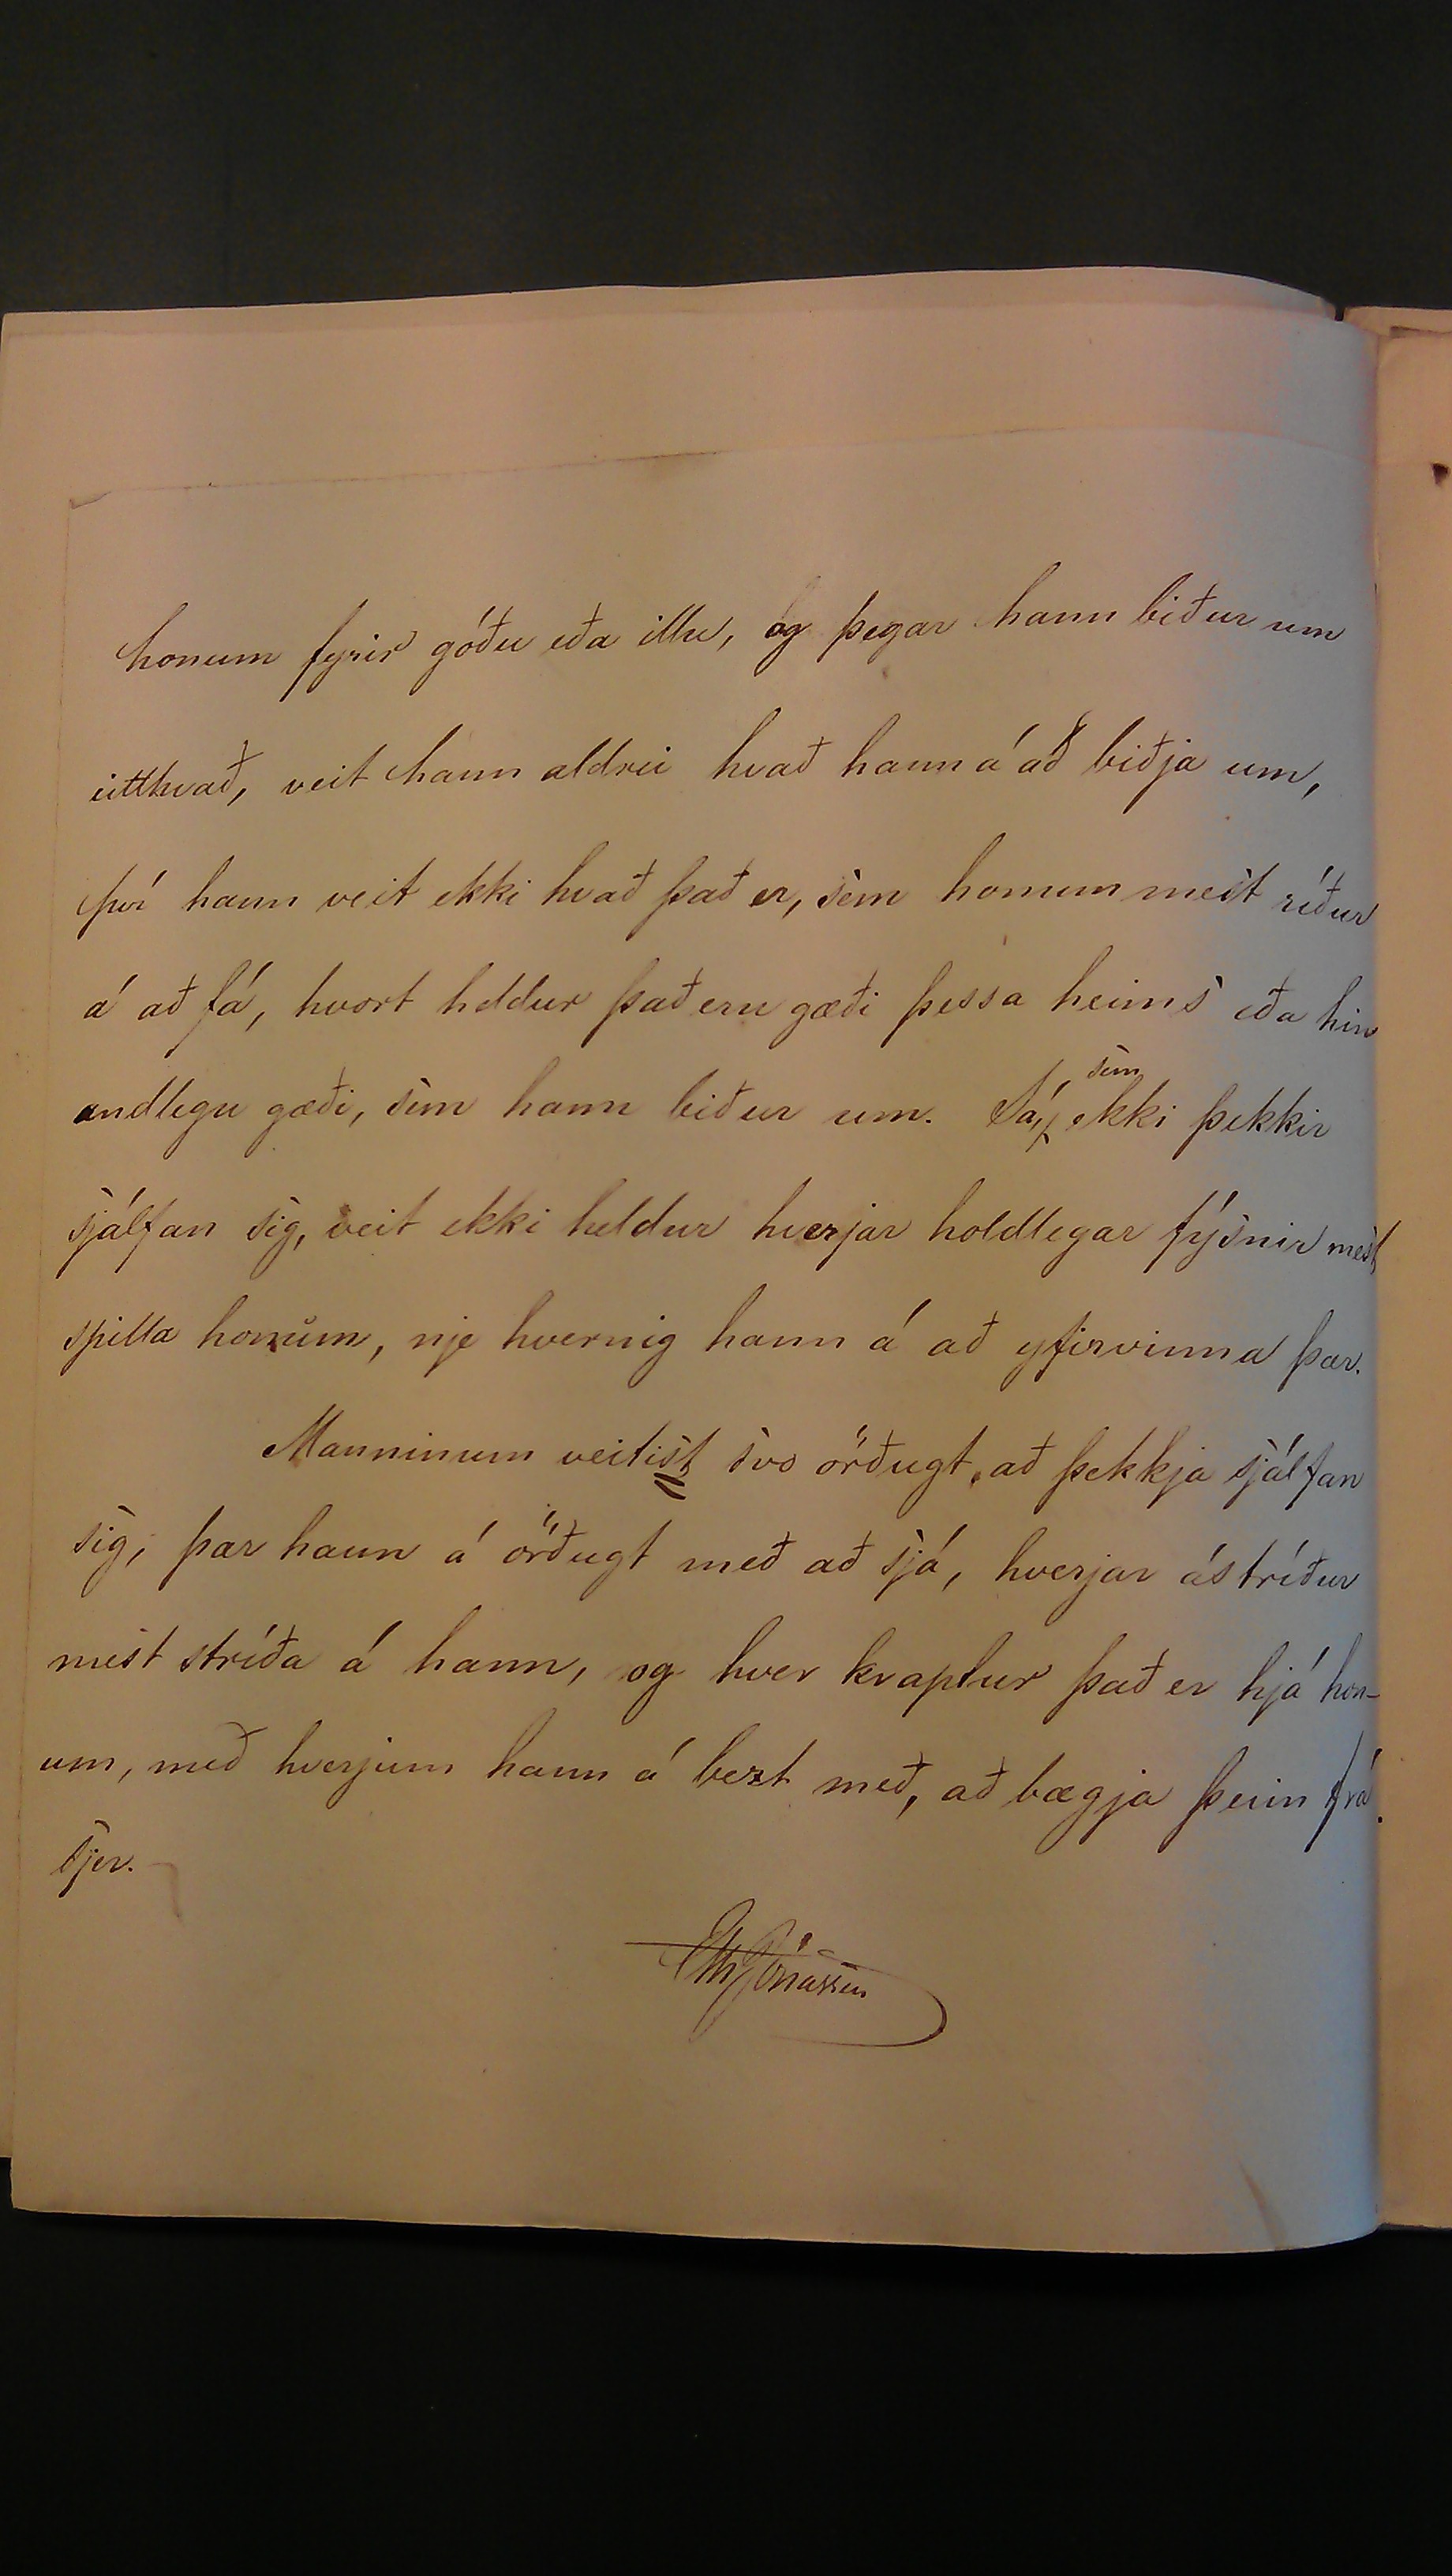 honum fyrir góðu eða illu, og þegar hann biður um
eitthvað, veit hann aldrei hvað hann á að biðja um,
því hann veit ekki hvað það er, sem honum mest ríður
á að fá, hvort heldur það eru gæði þessa heims eða hin
andlegu gæði, sem hann biður um. Sá, sem ekki þekkir
sjálfan sig, veit ekki heldur hverjar holdlegar fýsnir mest
spilla honum, nje hvernig hann á að yfirvinna þær.
Manninum veitist svo örðugt, að þekkja sjálfan
sig, þar hann á örðugt með að sjá, hverjar ástríður
mest stríða á hann, og hver kraptur það er hjá hon-
um, með hverjum hann á bezt með, að bægja þeim frá
sjer.
Jónassen